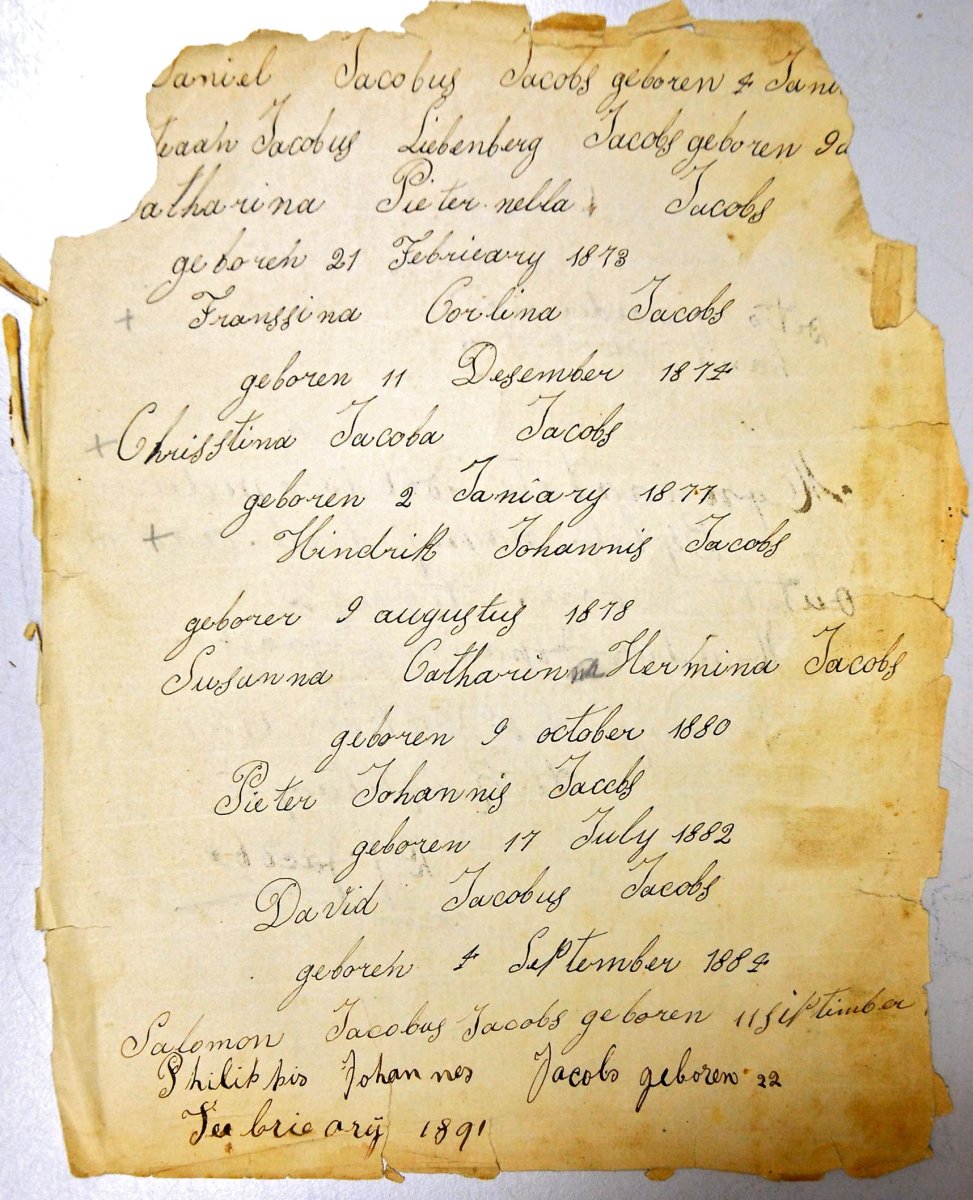 Daniel Jacobus Jacobs geboren 4 Jani
Jacobus Liebenberg Jacobs geboren 9
Catharina Pieternella Jacobs
geboren 21 Febrieary 1873
+ Franssina Corlina Jacobs
geboren 11 Desember 1874
+ Chrisstina Jacoba Jacobs
geboren 2 Janiary 1877
+ Hindrik Johannis Jacobs
geborer 9 augustus 1878
Susanna Catharinna Hermina Jacobs
geboren 9 october 1880
Pieter Johannis Jacobs
geboren 17 July 1882
David Jacobus Jacobs
geboren 4 September 1884
Salomon Jacobus Jacobs geboren 11 siptimber
Philippis Johannes Jacobs geboren 22
Feebrieary 1891